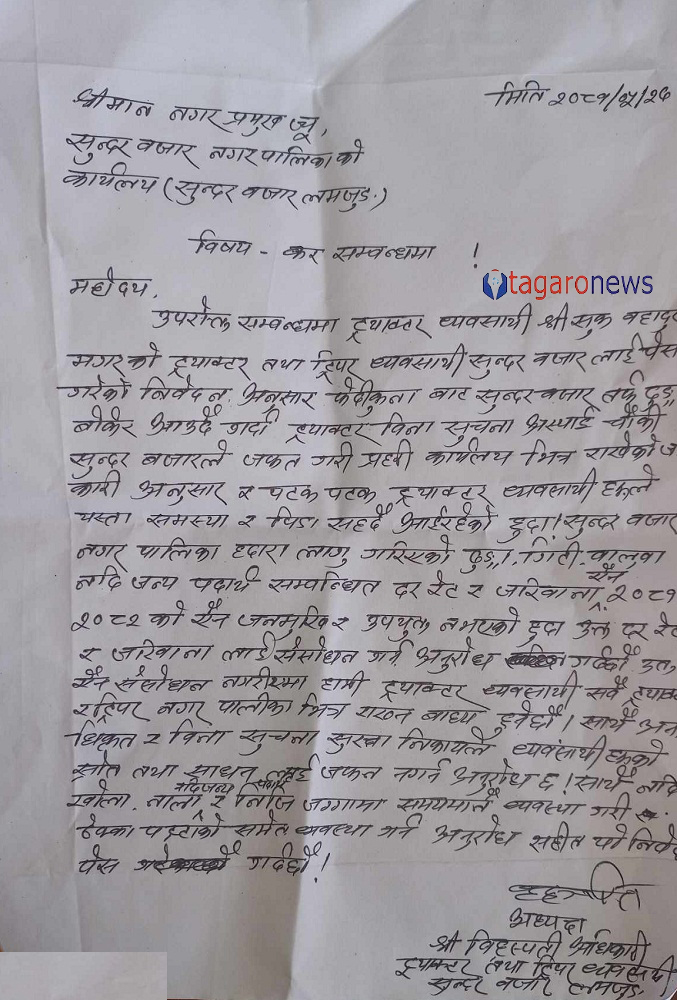 मिति २०८१/५/२६
श्रीमान नगर प्रमुख ज्यू,
सुन्दर बजार नगरपालिकाको
कार्यलय (सुन्दर बजार लमजुङ.)
विषय - कर सम्वन्धमा !
tagaronews
महोदय,
उपरोक्त सम्वन्धमा ट्र्याक्टर व्यवसायी श्री सुक वहादु
मगरको ट्र्याक्टर तथा ट्रिपर व्यवसायी सुन्दर बजार लाई पेस
गरेको निवेदन अनुसार बाट सुन्दर बजार तर्फ ढुङ्गा
बोकेर आउदै गर्दा ट्र्याक्टर विना सुचना अस्थाई चौकी
सुन्दर बजारले जफत गरी प्रहरी कार्यलय भित्र राखेको ज
कारी अनुसार र पटक पटक ट्र्याक्टर व्यवसायी हरुले
यस्ता समस्या र पिडा सहदै आईरहेको हुदा ! सुन्दर बजार
नगर पालिका द्दारा लागु गरिएको ढुङ्गा, गिटी, वालुवा
नदि जन्य पदार्थ सम्वन्धित दर रेट र जरिवाना ऐन २०८१
२०८२ को ऐन जनमुखि र उपयुक्त नभएको हुदा उक्त दर रे
र जरिवाना लाई संसोधन गर्न अनुरोध गर्दछौं उक्त
ऐन संसोधन नगरीएमा हामी ट्र्याक्टर व्यवसायी सवै ट्र्याक
र ट्रिपर नगर पालीका भित्र राख्न बाध्य हुनेछौं । साथै अन
धिकृत र विना सुचना सुरक्षा निकायले व्यवसायी हरुको
स्रोत तथा साधन लाई जफत नगर्न अनुरोध छ ! साथै नदि
खोला, नाला नदिजन्य र निजि जग्गामा समयमानै व्यवस्था गरी
ठेक्का पट्टाको समेत व्यवस्था गर्न अनुरोध सहीत यो निवे
पेस गर्दछौं !
अध्यक्ष
श्री विहस्पती अधिकारी
ट्र्याक्टर तथा ट्रिपर व्यवसायी
सुन्दर बजार लमजुङ.